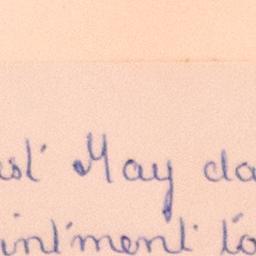 ast May da
intment to